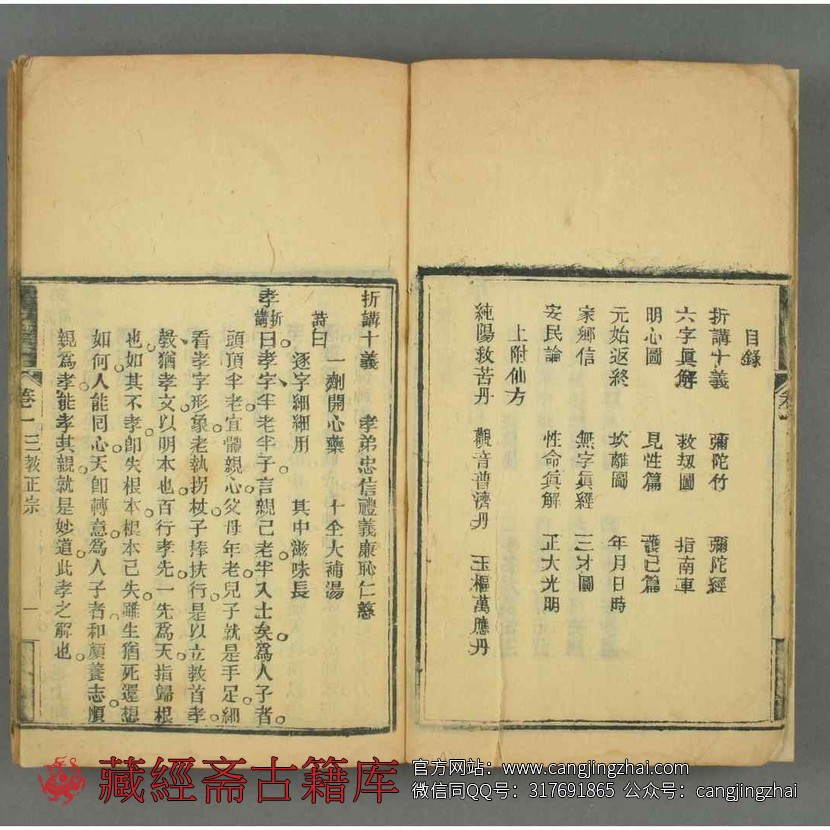 目錄
折講十義 彌陀竹 彌陀經
六字眞解 救刼圖 指南車
明心圖 見性篇 護已篇
元始返終 坎離圖 年月日時
家鄉信 無字眞經 三才圖
安民論 性命眞解 正大光明
上附仙方
純陽救苦丹 觀音普濟丹 玉樞萬應丹
折講十義 孝弟忠信禮義廉恥仁慈
詩曰 一劑開心藥 十全大補湯
逐字細細用 其中滋味長
孝 折講 曰孝字半老半子言親己老半入土矣為人子者
頭頂半老宜體親心父母年老兒子就是手足細
看孝字形象老執拐杖子捧扶行是以立教首孝
教猶孝文以明本也百行孝先一先為天指歸根
也如其不孝卽失根本根本已失雖生猶死還想
如何人能同心天卽轉意為人子者和顏養志順
親為孝能孝其親就是妙道此孝之解也
卷一 三教正宗 一
藏經斋古籍库
官方网站：www.cangjingzhai.com
微信同QQ号：317691865 公众号：cangjingzhai